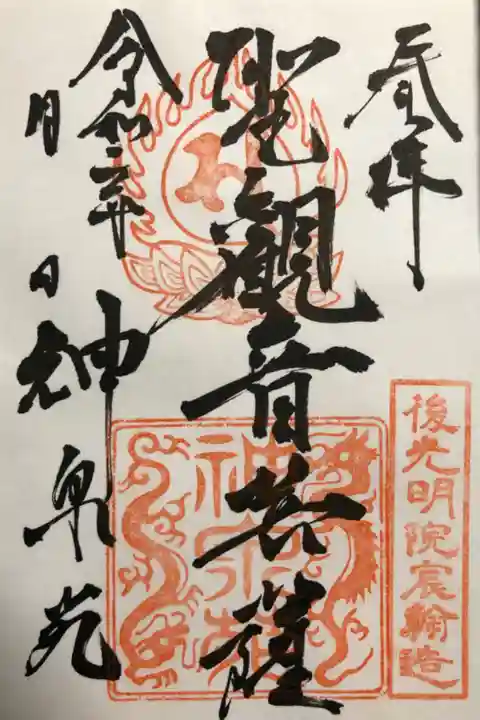 奉拝
聖觀音菩薩
令和二年
月
日
神泉苑
神泉苑
後光明院宸翰造